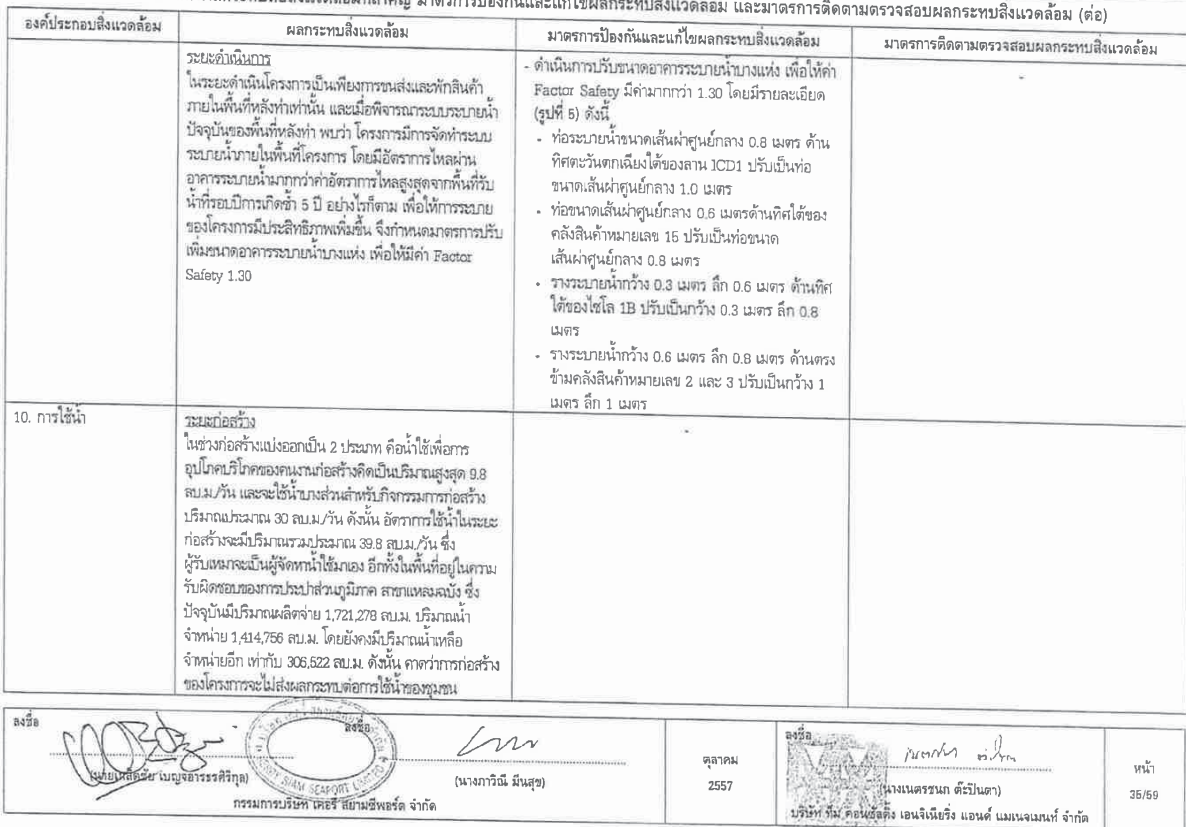 มาตรการป้องกันและแก้ไขผลกระทบสิ่งแวดล้อม และมาตรการติดตามตรวจสอบผลกระทบสิ่งแวดล้อม (ต่อ)
องค์ประกอบสิ่งแวดล้อม
ผลกระทบสิ่งแวดล้อม
มาตรการป้องกันและแก้ไขผลกระทบสิ่งแวดล้อม
มาตรการติดตามตรวจสอบผลกระทบสิ่งแวดล้อม
ระยะดำเนินการ
ในระยะดำเนินโครงการเป็นเพียงการขนส่งและพักสินค้า
ภายในพื้นที่หลังท่าเท่านั้น และเมื่อพิจารณาระบบระบายน้ำ
ปัจจุบันของพื้นที่หลังท่า พบว่า โครงการมีการจัดทำระบบ
ระบายน้ำภายในพื้นที่โครงการ โดยมีอัตราการไหลผ่าน
อาคารระบายน้ำมากกว่าค่าอัตราการไหลสูงสุดจากพื้นที่รับ
น้ำที่รอบปีการเกิดซ้ำ 5 ปี อย่างไรก็ตาม เพื่อให้การระบาย
ของโครงการมีประสิทธิภาพเพิ่มขึ้น จึงกำหนดมาตรการปรับ
เพิ่มขนาดอาคารระบายน้ำบางแห่ง เพื่อให้มีค่า Factor
Safety 1.30
- ดำเนินการปรับขนาดอาคารระบายน้ำบางแห่ง เพื่อให้ค่า
Factor Safety มีค่ามากกว่า 1.30 โดยมีรายละเอียด
(รูปที่ 5) ดังนี้
- ท่อระบายน้ำขนาดเส้นผ่าศูนย์กลาง 0.8 เมตร ด้าน
ทิศตะวันตกเฉียงใต้ของลาน ICD1 ปรับเป็นท่อ
ขนาดเส้นผ่าศูนย์กลาง 1.0 เมตร
- ท่อขนาดเส้นผ่าศูนย์กลาง 0.6 เมตรด้านทิศใต้ของ
คลังสินค้าหมายเลข 15 ปรับเป็นท่อขนาด
เส้นผ่าศูนย์กลาง 0.8 เมตร
- รางระบายน้ำกว้าง 0.3 เมตร ลึก 0.6 เมตร ด้านทิศ
ใต้ของไซโล 1B ปรับเป็นกว้าง 0.3 เมตร ลึก 0.8
เมตร
- รางระบายน้ำกว้าง 0.6 เมตร ลึก 0.8 เมตร ด้านตรง
ข้ามคลังสินค้าหมายเลข 2 และ 3 ปรับเป็นกว้าง 1
เมตร ลึก 1 เมตร
-
10. การใช้น้ำ
ระยะก่อสร้าง
ในช่วงก่อสร้างแบ่งออกเป็น 2 ประเภท คือน้ำใช้เพื่อการ
อุปโภคบริโภคของคนงานก่อสร้างคิดเป็นปริมาณสูงสุด 9.8
ลบ.ม./วัน และจะใช้น้ำบางส่วนสำหรับกิจกรรมการก่อสร้าง
ปริมาณประมาณ 30 ลบ.ม./วัน ดังนั้น อัตราการใช้น้ำในระยะ
ก่อสร้างจะมีปริมาณรวมประมาณ 39.8 ลบ.ม./วัน ซึ่ง
ผู้รับเหมาจะเป็นผู้จัดหาน้ำใช้มาเอง อีกทั้งในพื้นที่อยู่ในความ
รับผิดชอบของการประปาส่วนภูมิภาค สาขาแหลมฉบัง ซึ่ง
ปัจจุบันมีปริมาณผลิตจ่าย 1,721,278 ลบ.ม. ปริมาณน้ำ
จำหน่าย 1,414,756 ลบ.ม. โดยยังคงมีปริมาณน้ำเหลือ
จำหน่ายอีก เท่ากับ 306,522 ลบ.ม. ดังนั้น คาดว่าการก่อสร้าง
ของโครงการจะไม่ส่งผลกระทบต่อการใช้น้ำของชุมชน
-
ลงชื่อ
ลงชื่อ
เบญจอารรรศิริกุล)
(นางภาวิณี มีนสุข)
กรรมการบริษัท เคอรี่ สยามซีพอร์ต จำกัด
SIAM SEAPORT
ตุลาคม
2557
ลงชื่อ
(นางเนตรชนก ต๊ะปินตา)
บริษัท ทีม คอนซัลติ้ง เอนจิเนียริ่ง แอนด์ แมเนจเมนท์ จำกัด
หน้า
35/59